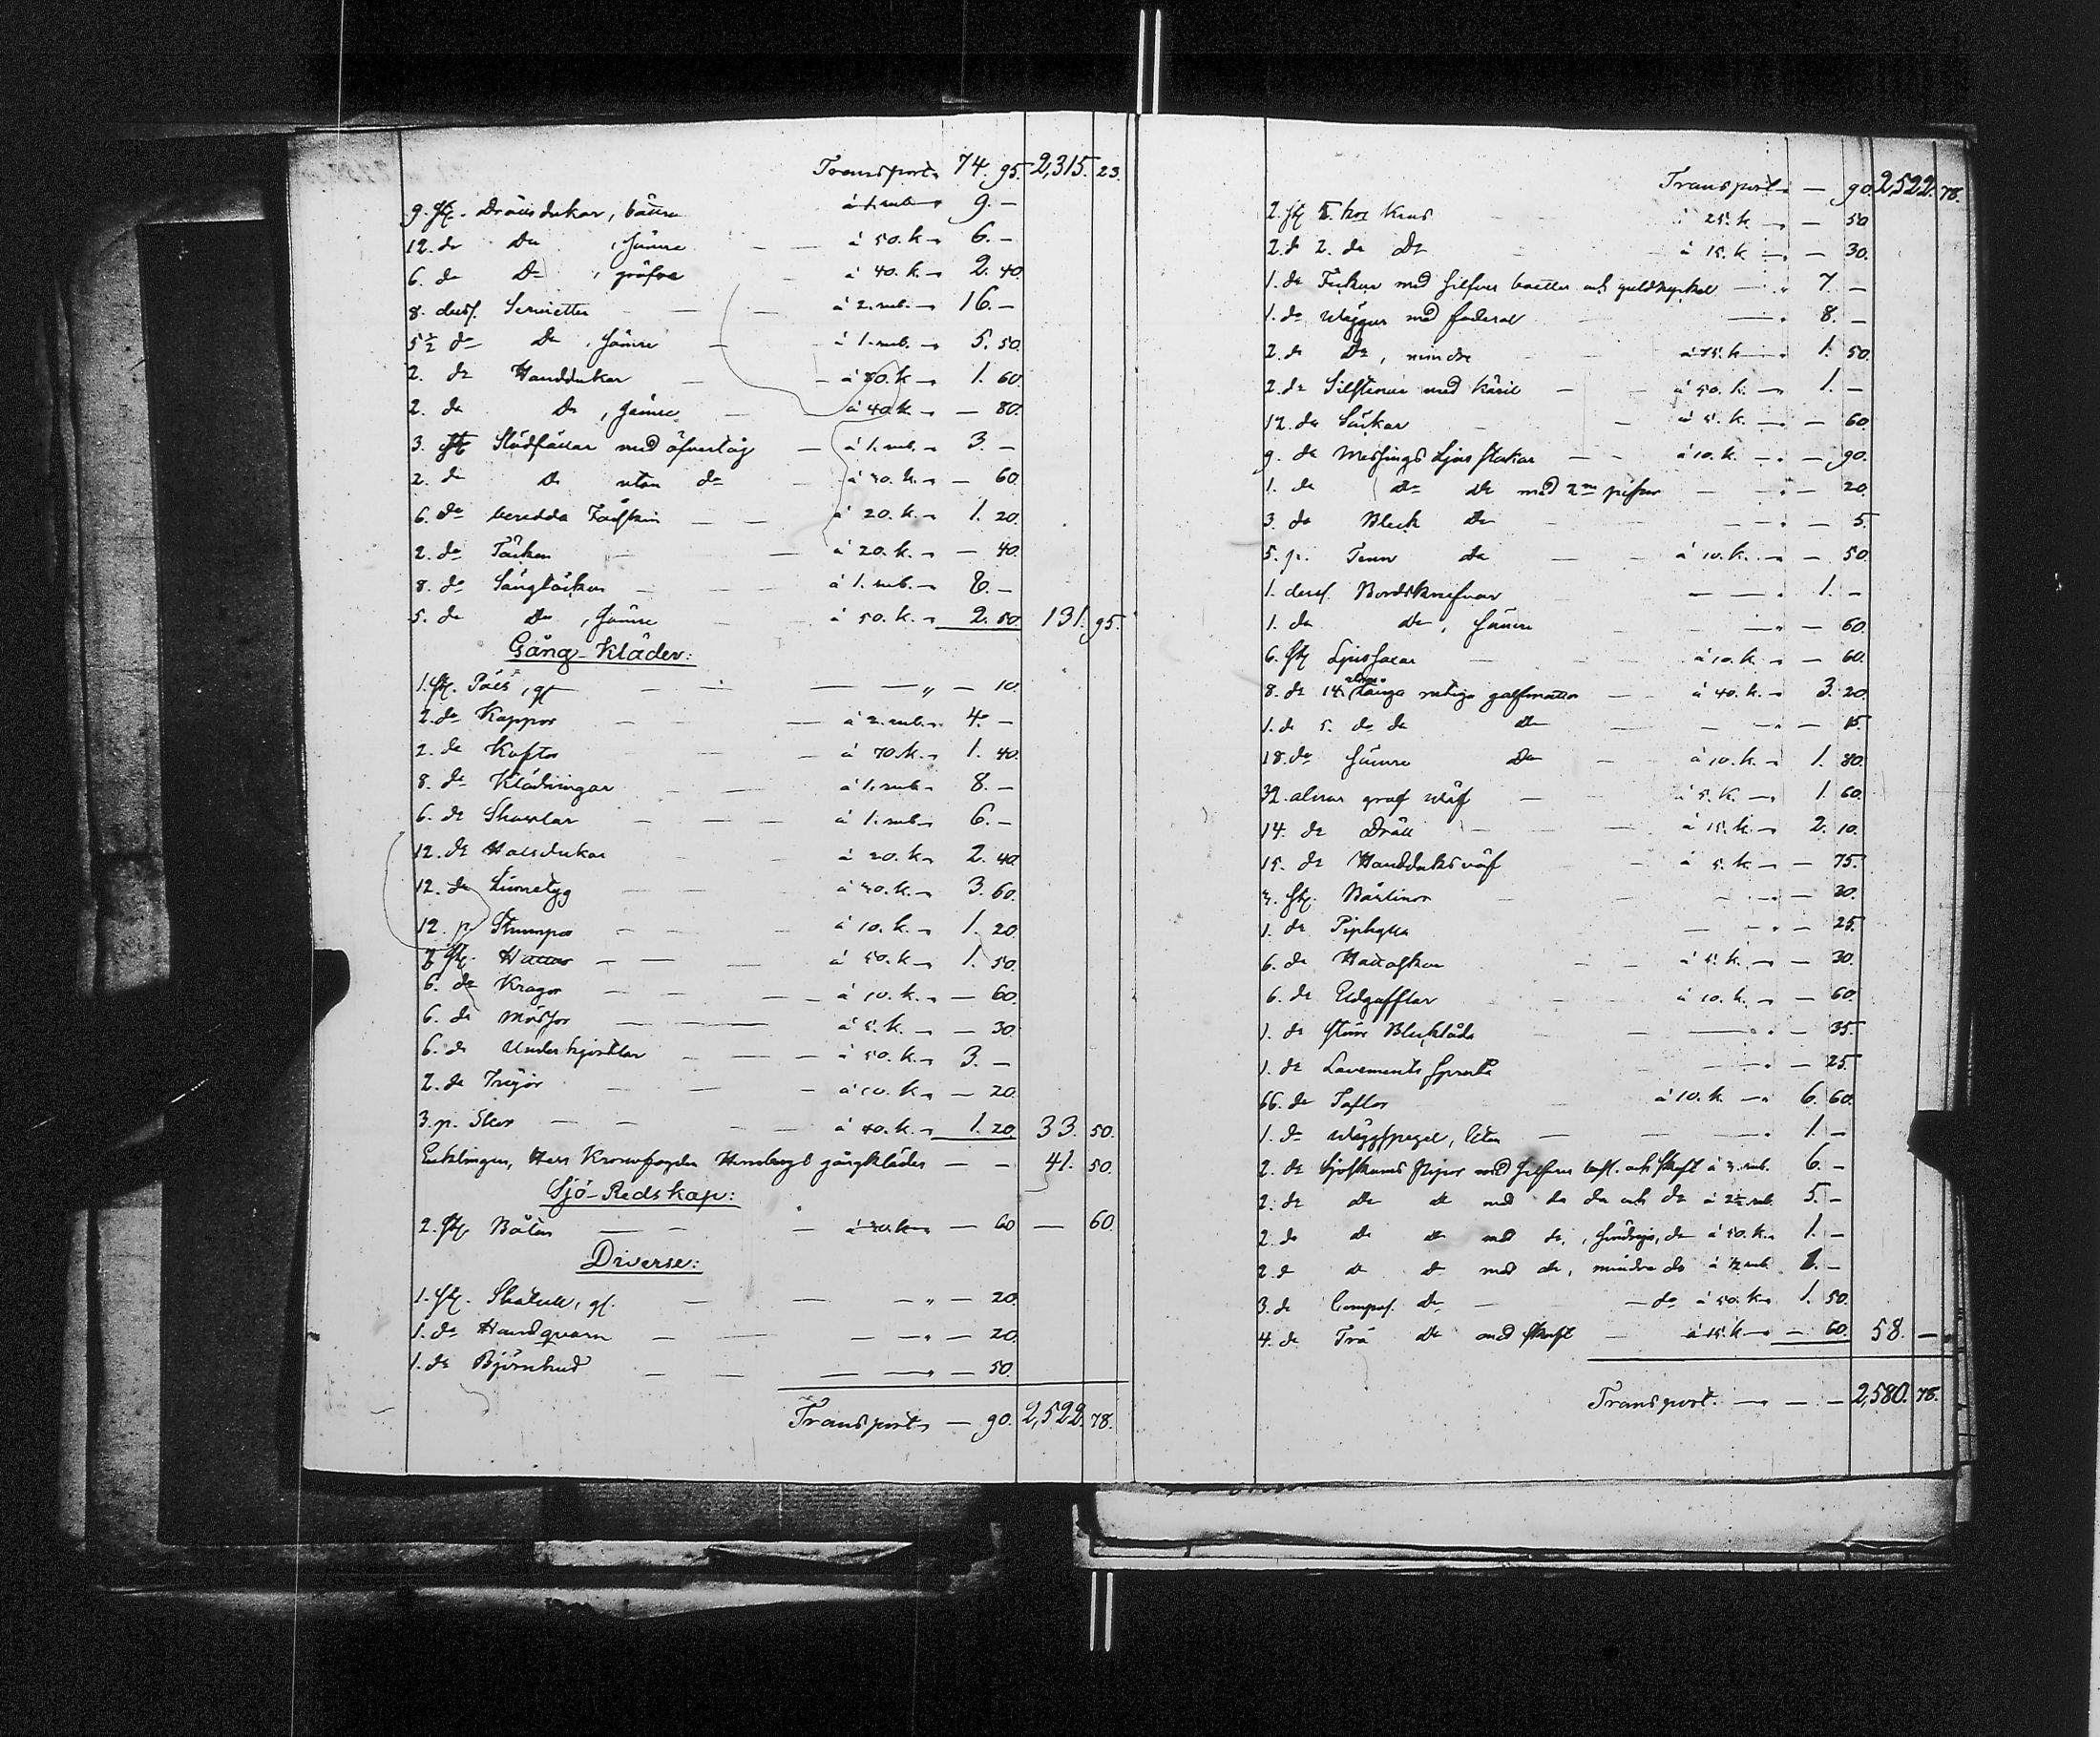 Transport 74. 95. 2,315. 23.
9. st. Drälls dukar, bättre à 1. rub. 9. —
12. do Do, sämre à 50. k. 6. —
6. do Do, gröfre à 40. k. 2. 40.
8. duss. Servietter à 2. rub. 16. —
5½ do Do, sämre à 1. rub. 5. 50.
2. do Handdukar à 80. k. 1. 60.
2. do Do, sämre à 40. k. — 80.
3. st. Slädfällar med öfvertåg à 1. rub. 3. —
2. do Do utan do à 30. k. — 60.
6. do beredda Fårskin à 20. k. 1. 20.
2. do Täcken à 20. k. — 40.
8. do Sängtäcken à 1. rub. 8. —
5. do Do, sämre à 50. k. 2. 50 131. 95.
Gång-Kläder:
1. st. Päls, gl. — 10.
2. do Kappor à 2. rub. 4. —
2. do Koftor à 70. k. 1. 40.
8. do Klädningar à 1. rub. 8. —
6. do Shawlar à 1. rub. 6. —
12. do Halsdukar à 20. k. 2. 40
12. do Linnetyg à 30. k. 3. 60.
12. p. Strumpor à 10. k. 1. 20.
st. Hattar à 50. k. 1. 50.
6. do Kragor à 10. k. — 60.
6. do Mössor à 5. k. — 30.
6. do Underkjortlar à 50. k. 3. —
2. do Tröjor à 10. k. — 20.
3. p. Skor à 40. k. 1. 20. 33. 50.
Enklingen, Herr Kronofogden gångkläder — — 41. 50.
Sjö-Redskap:
2. st. Båtar à 30. k. — 60 — 60.
Diverse:
1. st. Skatull, gl. — 20.
1. do Handqvarn — 20.
1. do Björnhud — 50.
Transport — 90. 2,522. 78.
Transport — 90. 2,522. 78.
2. st. Krus 25. k. — 50
2. do 2. do Do à 15. k. — 30.
1. do Fickur med silfver boetter och guldnyckel 7. —
1. do Väggur med foderal 8. —
2. do Do, mindre à 75. k. 1. 50.
2. do med käril à 50. k. 1. —
12. do Säckar à 5. k. — 60
9. do Messings Ljus stakar à 10. k. — 90.
1. do Do Do med 2ne pipor — 20.
3. do Bleck Do — 5.
5. p. Tenn Do à 10. k. — 50.
1. duss. Bordsknifvar 1. —
1. do Do, sämre — 60.
6. st. Ljussaxar à 10. k. — 60.
8. do 14. alnar långa rutiga golfmattor à 40. k. 3. 20.
1. do 5. do do Do — 15
18. do sämre Do à 10. k. 1. 80.
32. alnar graf väf à 5. k. 1. 60.
14. do Dräll à 15. k. 2. 10.
15. do Handduksväf à 5. k. — 75.
st. Bärlinor — 30.
1. do Piphylla — 25.
6. do à 5. k. — 30.
6. do Eldgafflar à 10. k. — 60.
1. do större Blecklåda — 35.
1. do Lavements spruta — 25.
66. do Taflor à 10. k. 6. 60.
1. do Väggspegel, liten 1. —
2. do Sjöskums Pipor med silfver besl. och skaft à 3. rub. 6. —
2. do Do Do med do do och do à 2½ rub. 5. —
2. do Do Do med do, söndrig, do à 50. k. 1. —
2. do Do Do med do, mindre do à ½ rub. 1. —
3. do Compos. Do — do à 50. k. 1. 50.
4. do Trä Do med skaft à 15. k. — 60. 58. —
Transport. — — 2,580. 78.